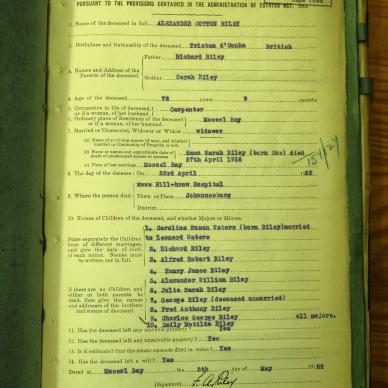 PURSUANT TO THE PROVISIONS CONTAINED IN THE ADMINISTRATION OF ESTATES ACT,
1. Name of the deceased in full ALEXANDER COTTON RILEY
2. Birthplace and Nationality of the deceased Tristan d'Cunha British
3. Names and Address of the Parents of the deceased.
Father Richard Riley
Mother Sarah Riley
4. Age of the deceased 78 years 9 months
5. Occupation in life of deceased, or if a woman, of her husband Carpenter
6. Ordinary place of Residence of the deceased or if a woman, of her husband. Mossel Bay
7. Married or Unmarried, Widower or Widow widower
(a) Name of surviving spouse (if any), and whether married in Community of Property or not.
(b) Name or names, and approximate date of death of predeceased spouse or spouses Emma Sarah Riley (born Cox) died
27th April 1916
(c) Place of last marriage Mossel Bay
8. The day of the decease: On 23rd April 22
9. Where the person died. Hill-brow Hospital
Town or Place Johannesburg
District
10. Names of Children of the deceased, and whether Majors or Minors.
State separately the Children born of different marriages, and give the date of birth of each minor. Names must be written out in full.
If there are no Children and either or both parents be dead, then give the names and addresses of the brothers and sisters of deceased.
1. Caroline Susan Waters (born Riley) married
to Leonard Waters
2. Richard Riley
3. Alfred Robert Riley
4. Henry James Riley
5. Alexander William Riley
6. Julia Sarah Riley
7. George Riley (deceased unmarried)
8. Fred Anthony Riley
9. Charles George Riley all majors.
10. Emily Matilda Riley
11. Has the deceased left any movable property? Yes
12. Has the deceased left any immovable property? Yes
13. Is it estimated that the estate exceeds £300 in value? Yes
14. Has the deceased left a will? Yes
Dated at Mossel Bay the 5th day of May 1922
(Signature)